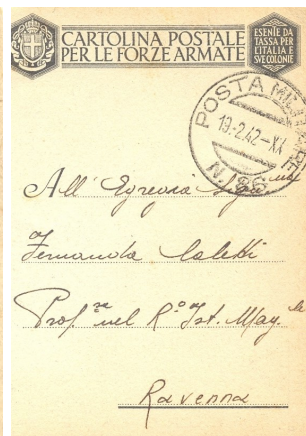 CARTOLINA POSTALE
PER LE FORZE ARMATE
ESENTE DA
TASSA PER
L'ITALIA E
SVE COLONIE
POSTA MILITARE
19·2·42-XX
N.186
All' Egregia
Fernanda
Prof.<sup>re</sup> nel R.° Ist. Mag.<sup>le</sup>
Ravenna